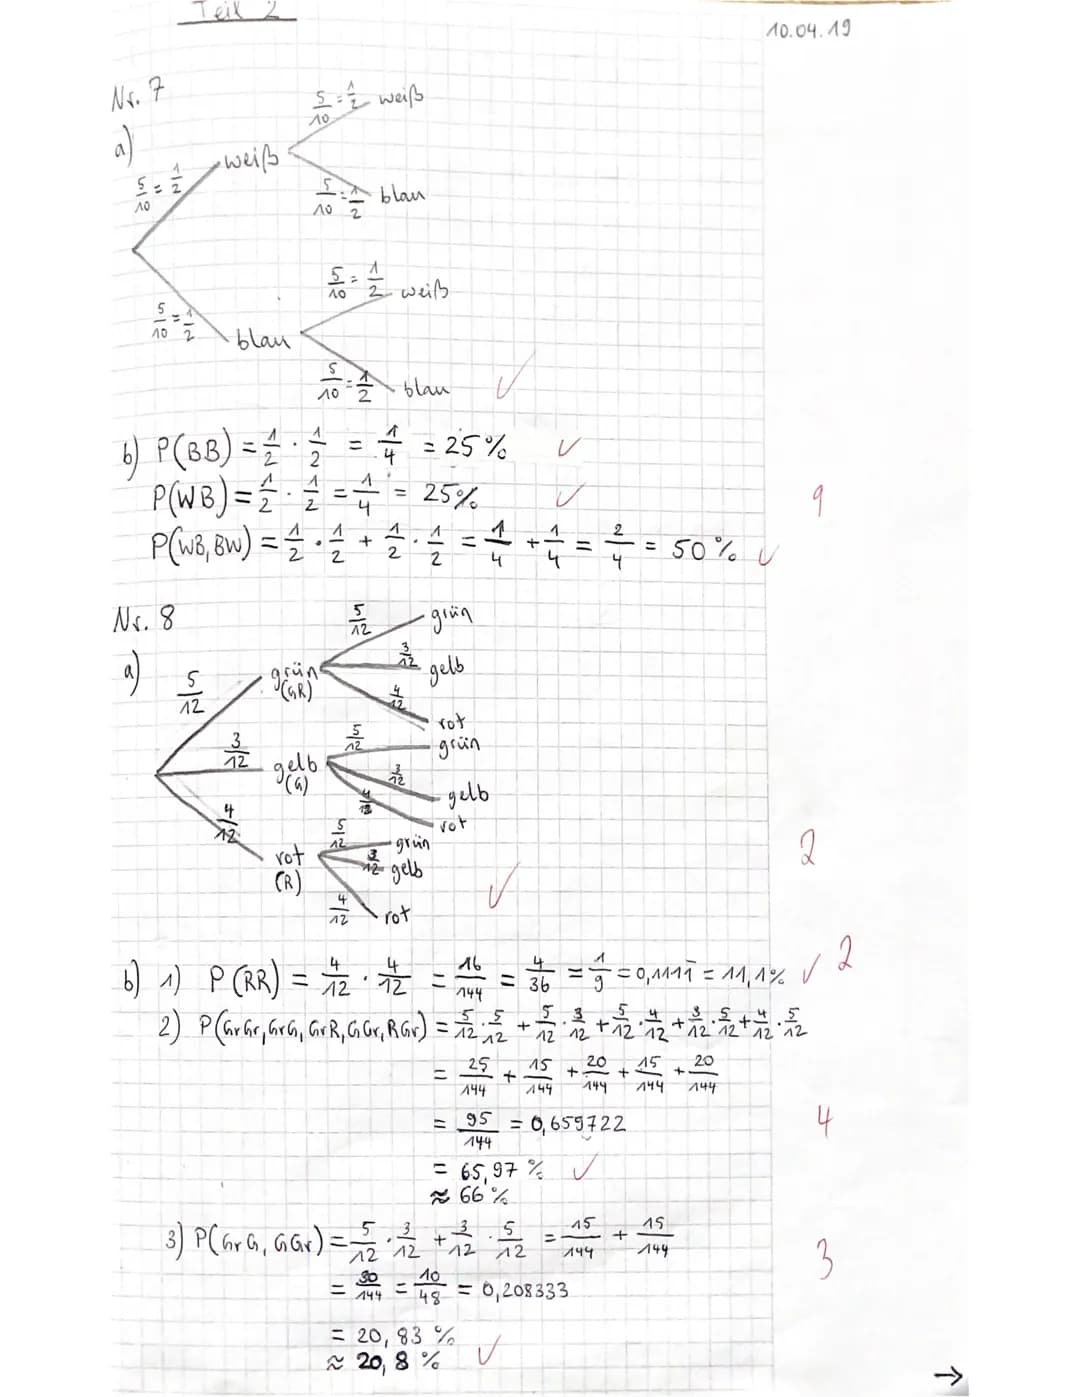 Teil 2
10.04.19
Nr. 7
a)
5/10 = 1/2 weiß
5/10 = 1/2 weiß
5/10 = 1/2 blau
5/10 = 1/2 blau
5/10 = 1/2 weiß
5/10 = 1/2 blau ✓
b) P(BB) = 1/2 · 1/2 = 1/4 = 25% ✓
P(WB) = 1/2 · 1/2 = 1/4 = 25% ✓ 9
P(WB, BW) = 1/2 · 1/2 + 1/2 · 1/2 = 1/4 + 1/4 = 2/4 = 50% ✓
Nr. 8
a)
5/12 grün (GR)
5/12 grün
3/12 gelb
4/12 rot
3/12 gelb (G)
5/12 grün
3/12 gelb
4/12 rot
4/12 rot (R)
5/12 grün
3/12 gelb
4/12 rot ✓ 2
b) 1) P(RR) = 4/12 · 4/12 = 16/144 = 4/36 = 1/9 = 0,1111̅ = 11,1% ✓ 2
2) P(GrGr, GrG, GrR, GGr, RGr) = 5/12 · 5/12 + 5/12 · 3/12 + 5/12 · 4/12 + 3/12 · 5/12 + 4/12 · 5/12
= 25/144 + 15/144 + 20/144 + 15/144 + 20/144
= 95/144 = 0,659722 4
= 65,97 % ✓
≈ 66 %
3) P(GrG, GGr) = 5/12 · 3/12 + 3/12 · 5/12 = 15/144 + 15/144 3
= 30/144 = 10/48 = 0,208333
= 20,83 %
≈ 20,8 % ✓
→